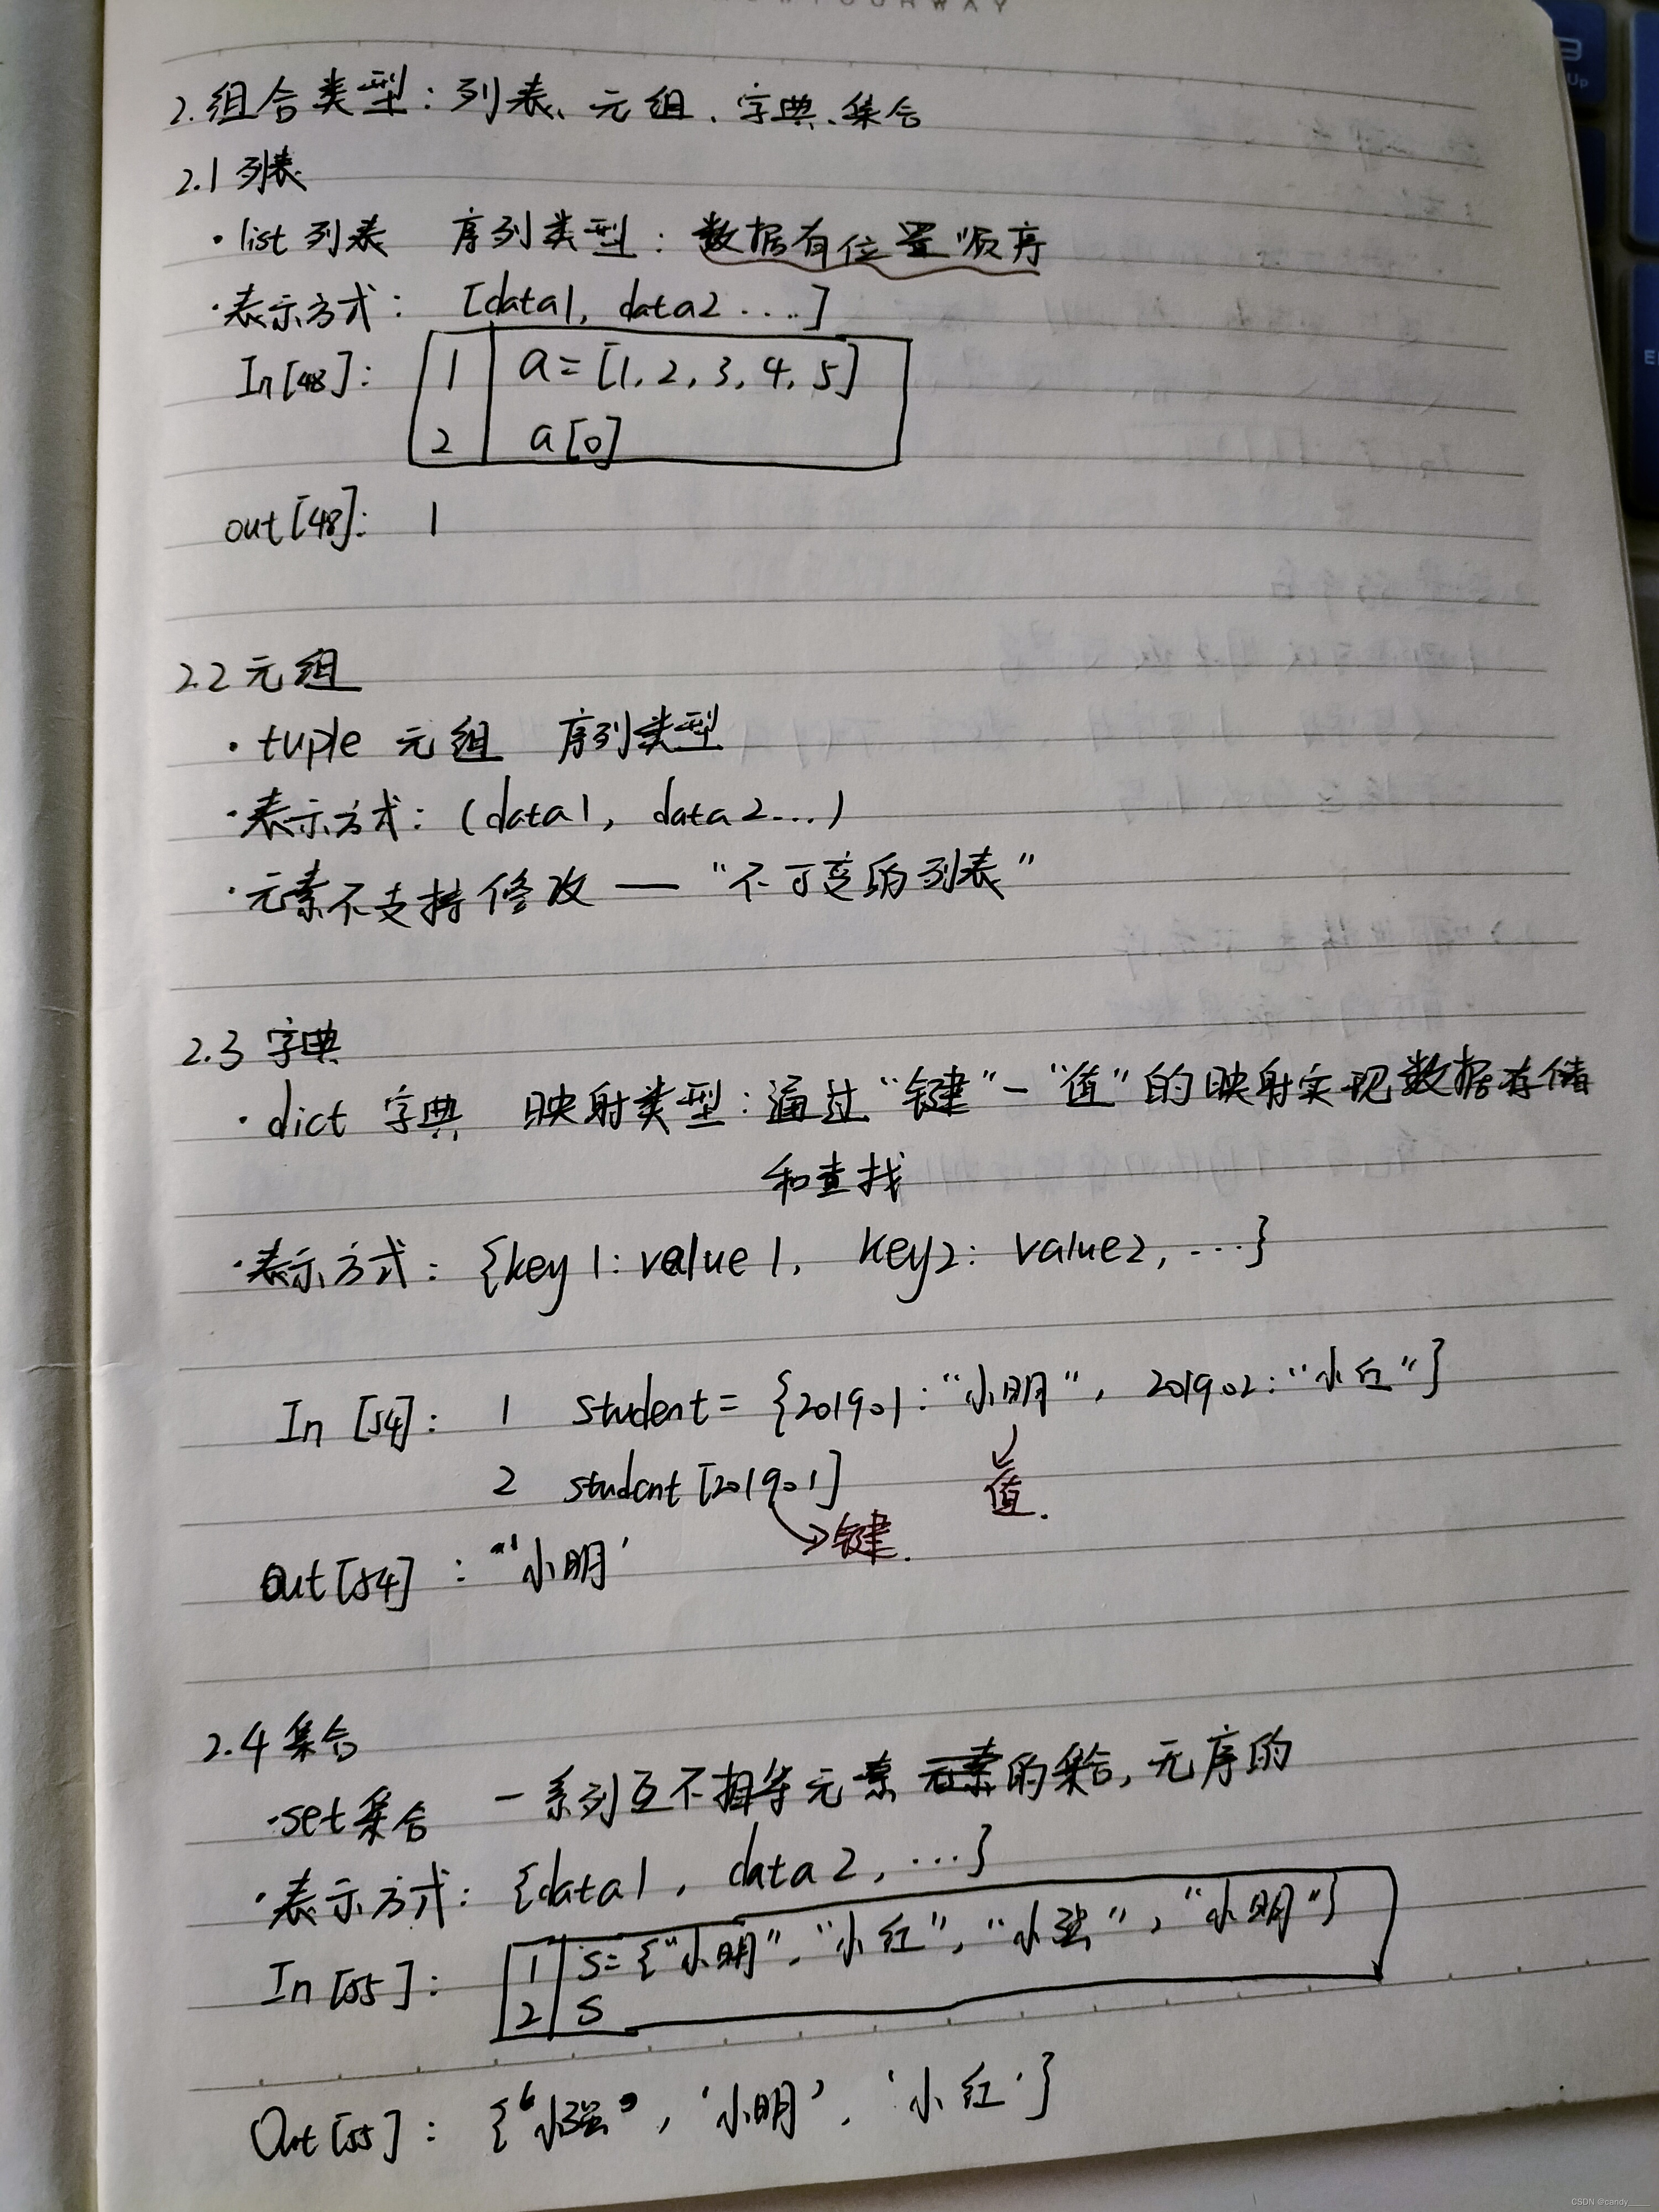 2.组合类型：列表、元组、字典、集合
2.1 列表
·list 列表 序列类型：数据有位置顺序
·表示方式： [data1, data2 ....]
In[48]: 1 a=[1, 2, 3, 4, 5]
2 a[0]
out[48]: 1
2.2 元组
·tuple 元组 序列类型
·表示方式：(data1, data2...)
·元素不支持修改——“不可变的列表”
2.3 字典
·dict 字典 映射类型：通过“键”-“值”的映射实现数据存储
和查找
·表示方式：{key1:value1, key2: value2, ...}
In [54]: 1 student= {201901:“小明”, 201902:“小红”}
2 student[201901]
值.
键.
out[54] : '小明'
2.4 集合
·set集合 一系列互不相等元素的集合,无序的
·表示方式：{data1, data2, ...}
In [55]: 1 s={“小明”,“小红”,“小强”,“小明”}
2 s
Out[55]: {'小强', '小明', '小红'}
CSDN @candy____